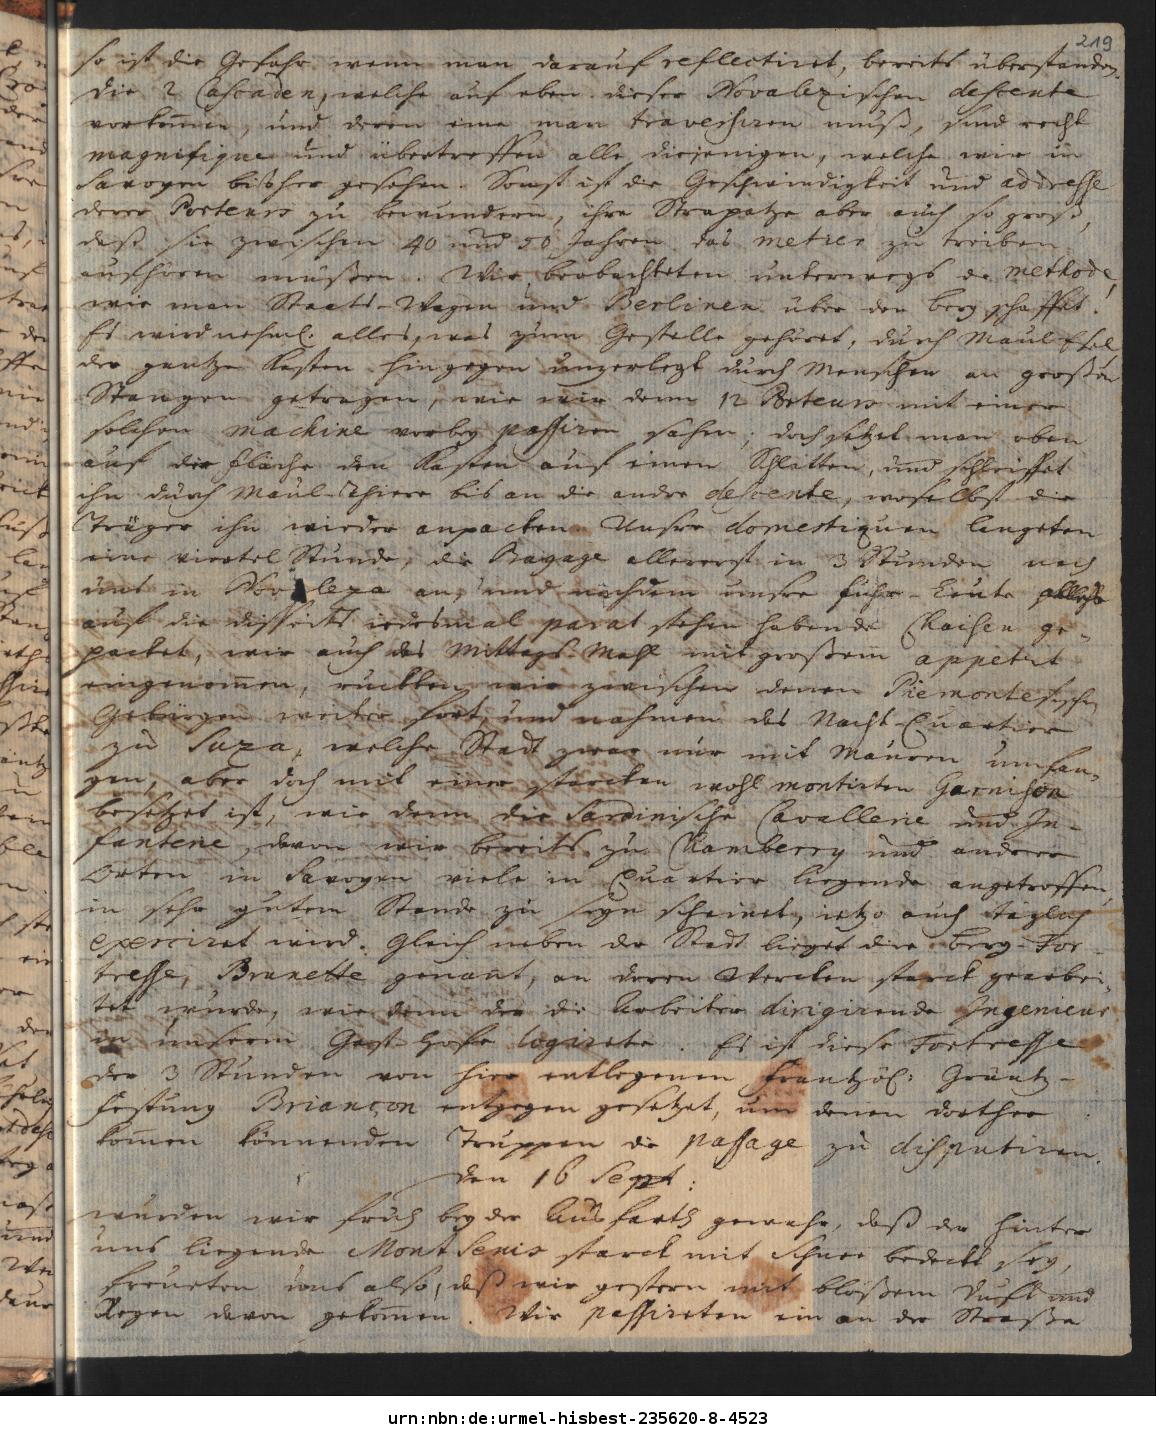 219
so ist die Gefahr wenn man darauf reflectiret, bereits überstanden.
Die 2 Cascaden, welche auf eben dieser Novalezischen descente
vorkom̄en, und deren eine man traversiren muß, sind recht
magnifique und übertreffen alle diejenigen, welche wir in
Savoyen bißher gesehen. Sonst ist die Geschwindigkeit und addresse
derer Porteurs zu bewundern, ihre Strapatze aber auch so groß,
daß sie zwischen 40 und 50 Jahren das metier zu treiben
aufhören müßen. Wir beobachteten unterwegs die methode,
wie man Staats-Wagen und Berlinen über den berg schaffet!
Es wird nehml. alles, was zum Gestelle gehöret, durch Maul Esel
der gantze Kasten hingegen unzerlegt durch Menschen an großen
Stangen getragen, wie wir denn 12 Porteurs mit einer
solchen machine vorbey passiren sahen, doch setzet man oben
auf der fläche den Kasten auf einen Schlitten, und schleiffet
ihn durch Maul-Thiere bis an die andre descente, woselbst die
Träger ihn wieder anpacken. Unsre domestiquen langeten
eine viertel Stunde, die Bagage allererst in 3 Stunden nach
uns in Novaleza an, und nachdem unsre fuhr-Leute alles
auf die disseits iedesmal parat stehen habende Chaisen ge-
packet, wir auch das Mittags Mahl mit großem appetit
eingenom̄en, rückten wir zwischen denen Piemontesischen
Gebürgen weiter fort, und nahmen das Nacht-Quartier
zu Suza, welche Stadt zwar nur mit Mauren umfan-
gen, aber doch mit einer starcken wohl montirten Garnison
besetzet ist, wie denn die Sardinische Cavallerie und In-
fanterie, davon wir bereits zu Chamberry und andern
Orten in Savoyen viele in Quartier liegende angetroffen,
in sehr gutem Stande zu seyn scheinet, ietzo auch täglich
exerciret wird. Gleich neben der Stadt lieget die Berg-For-
tresse, Brunette genant, an deren Wercken starck gearbei-
tet wurde, wie denn der die Arbeiter dirigirende Ingenieur
in unserm Gast-Hofe logirete. Es ist diese Fortresse
der 3 Stunden von hier entlegenen Frantzös: Gräntz-
festung Briançon entgegen gesetzet, um denen dorther
kom̄en könnenden Truppen die passage zu disputiren.
den 16 Sept:
wurden wir früh bey der Ausfarth gewahr, daß der hinter
uns liegende Mont Senis starck mit Schnee bedeckt sey,
freueten uns also, daß wir gestern mit bloßem Duft und
Regen davon gekom̄en. Wir passireten ein an der Straße
urn:nbn:de:urmel-hisbest-235620-8-4523